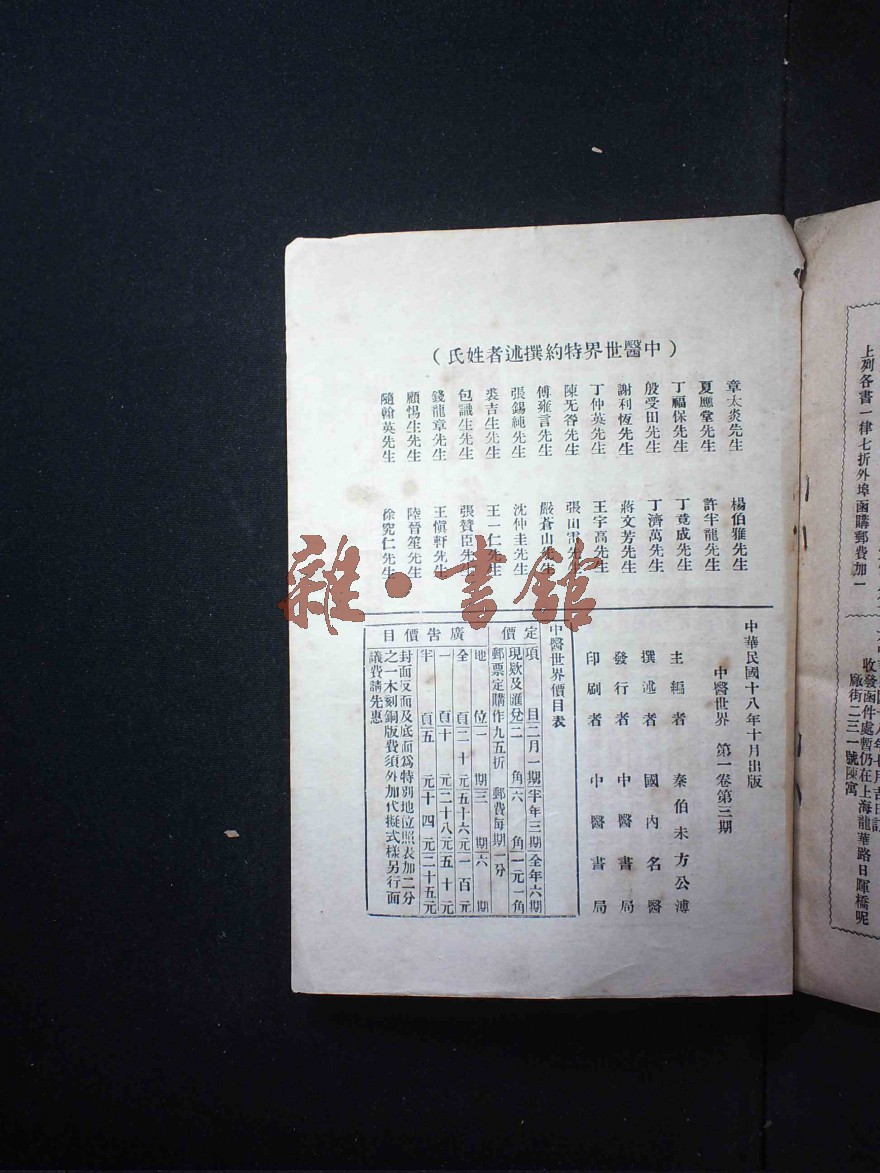 （中醫世界特約撰述者姓氏）
章太炎先生
夏應堂先生
丁福保先生
殷受田先生
謝利恆先生
丁仲英先生
陳无咎先生
傅雍言先生
張錫純先生
裘吉生先生
包識生先生
錢龍章先生
顧惕生先生
隨翰英先生
楊伯雅先生
許半龍先生
丁竟成先生
丁濟萬先生
蔣文芳先生
王宇高先生
張山雷先生
嚴蒼山先生
沈仲圭先生
王一仁先生
張贊臣先生
王愼軒先生
陸晉笙先生
徐究仁先生
中華民國十八年十月出版
中醫世界　第一卷第三期
主編者　秦伯未方公溥
撰述者　國內名醫
發行者　中醫書局
印刷者　中醫書局
中醫世界價目表
定價
項目　二月一期　半年三期　全年六期
現欵及匯兌　二角　六角　一元一角
郵票定購作九五折　郵費每期一分
廣告價目
地位　一期　三期　六期
全頁　二十元　五十六元　一百元
一頁　十元　二十八元　五十元
半頁　五元　十四元　二十五元
封面反面及底面爲特別地位照表加二分
之一木刻銅版費須外加代擬式樣另行面
議費請先惠
上列各書一律七折外埠函購郵費加一
收發函件處暫仍在上海龍華路日暉橋呢
廠街二三一號陳寓
雜·書館